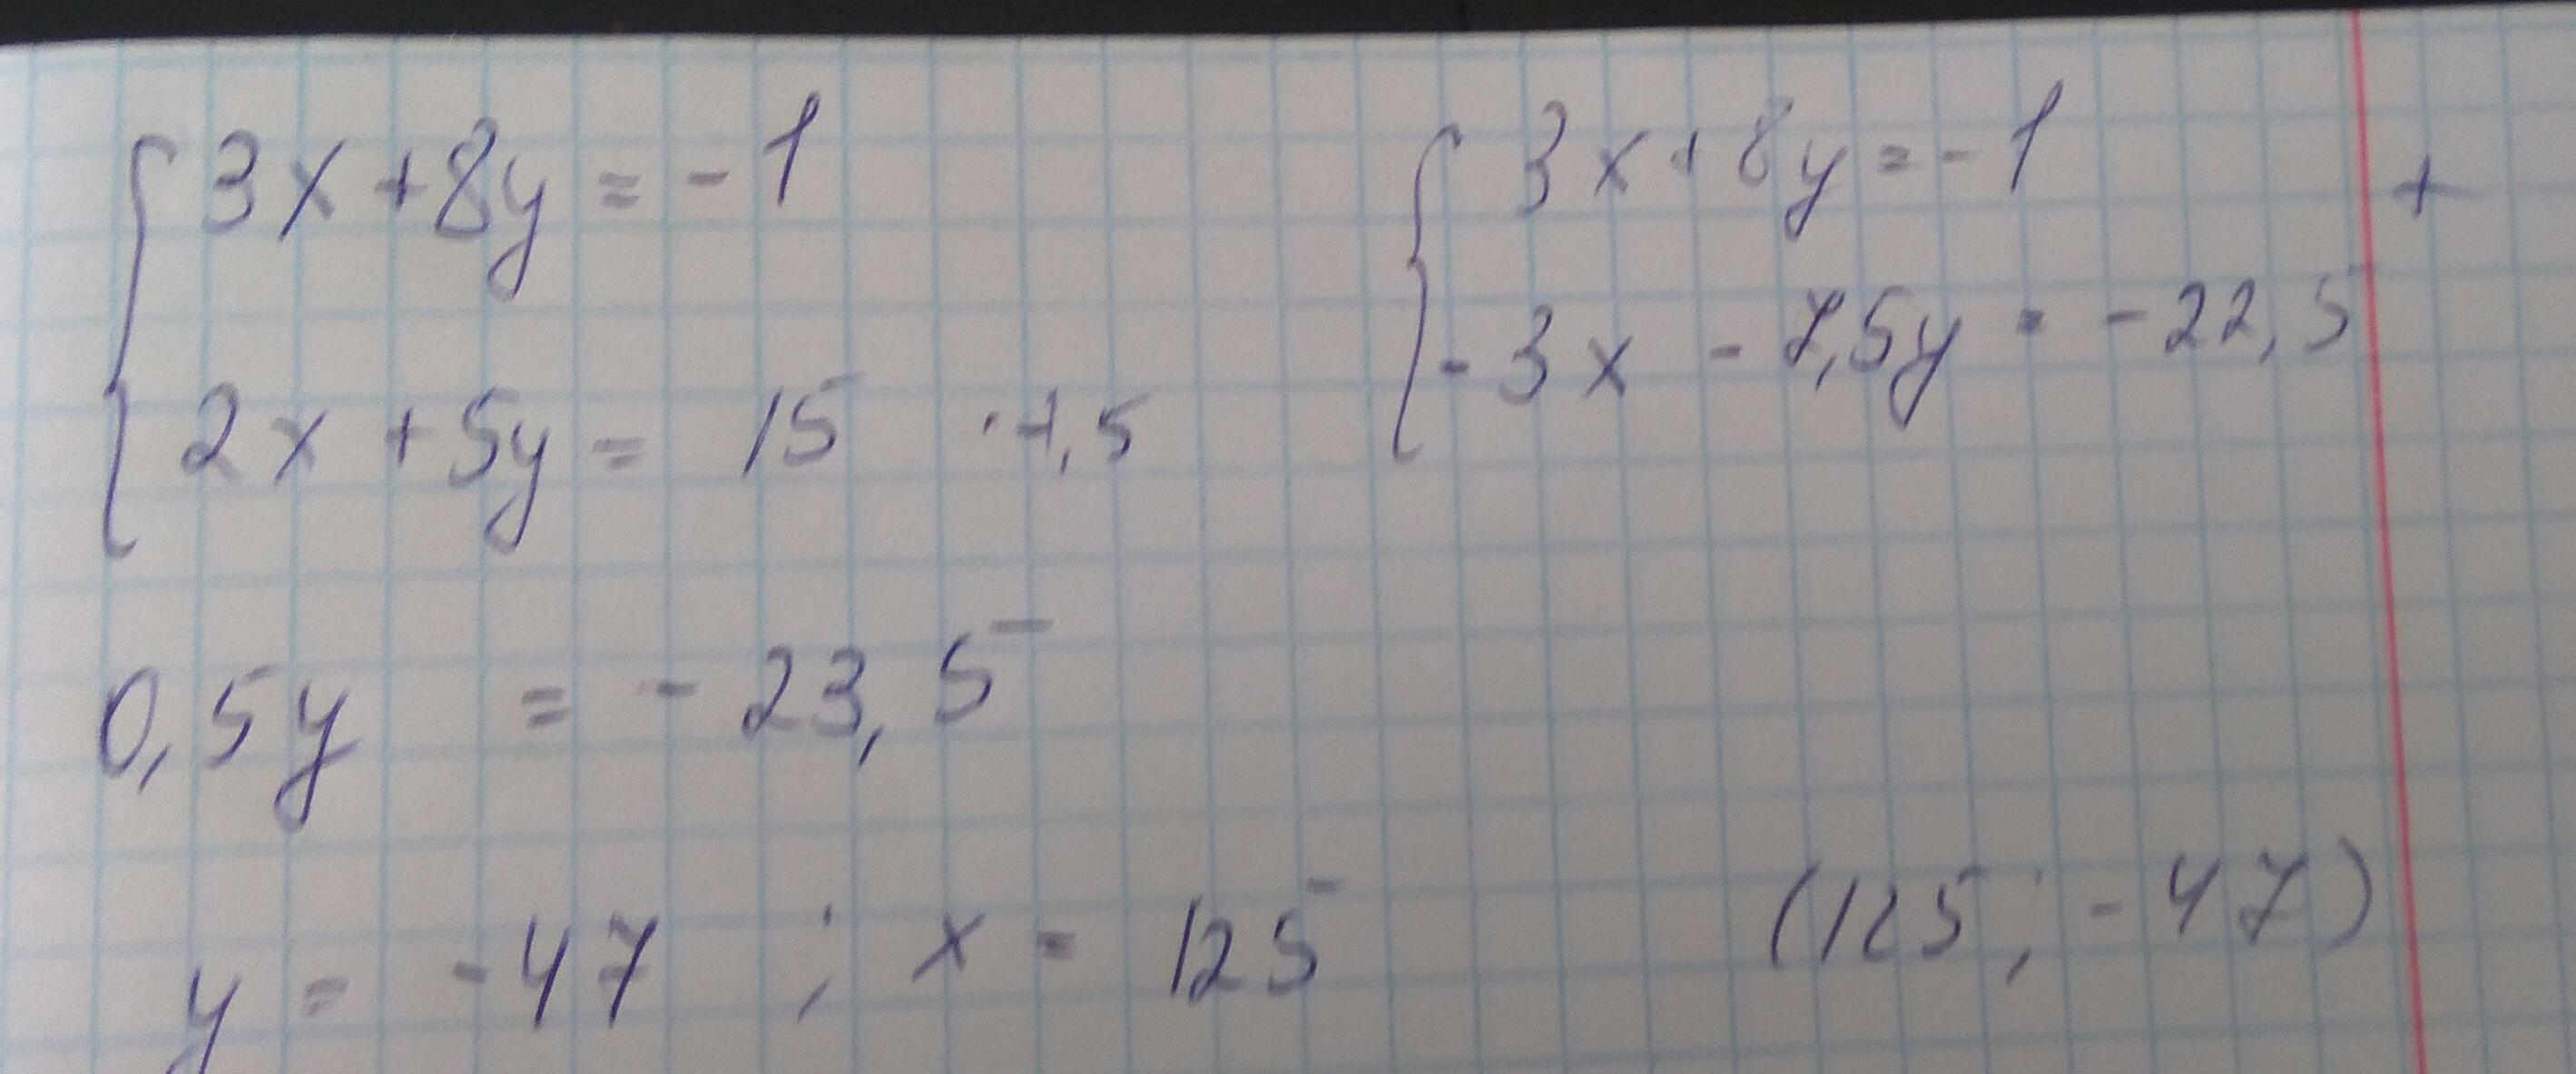 3x + 8y = -1
2x + 5y = 15 · -1,5
3x + 8y = -1 +
-3x - 7,5y = -22,5
0,5y = -23,5
y = -47 ; x = 125 (125 ; -47)